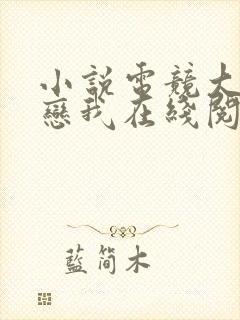 小說電競大
戀我在綫閱
藍簡木